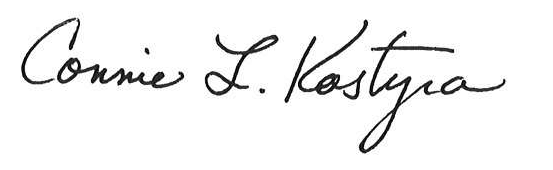 Connie L. Kostyra